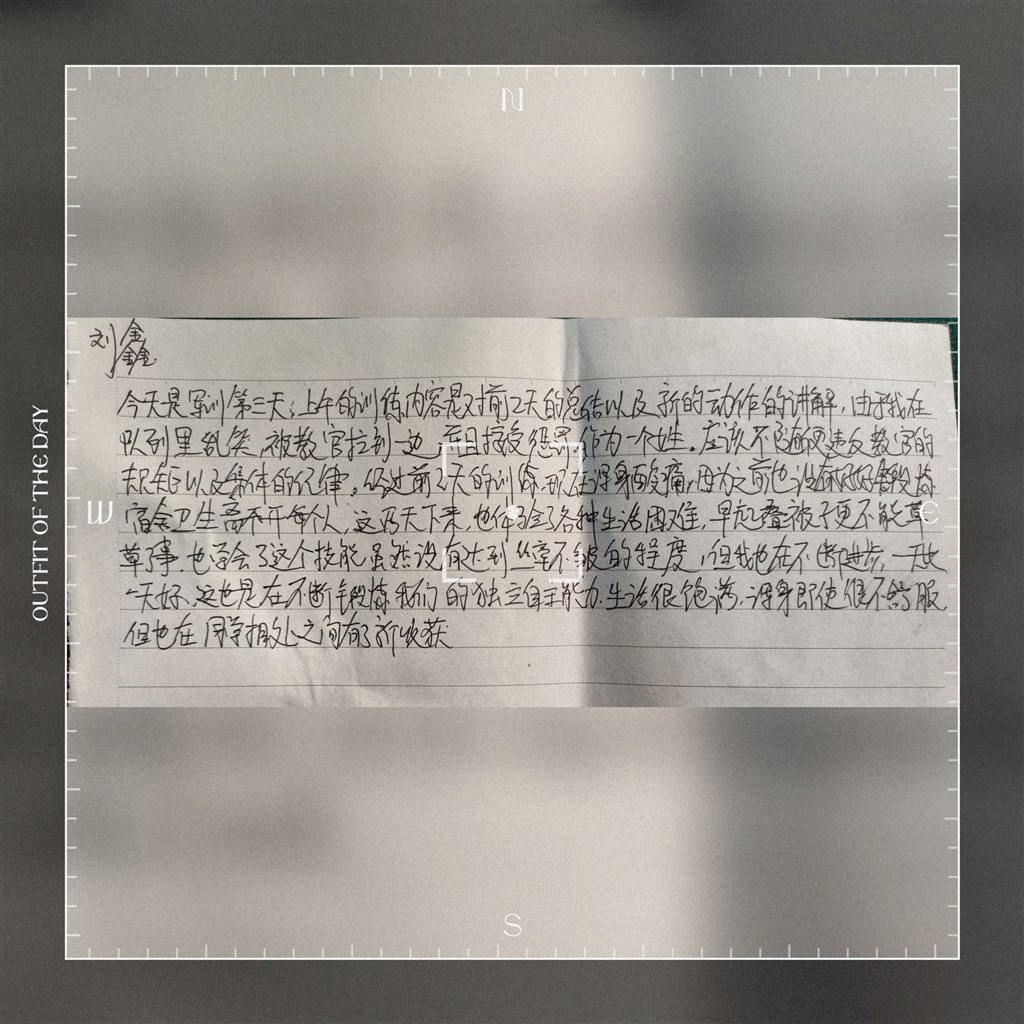 N
刘鑫
今天是军训第三天,上午的训练内容是对前2天的总结以及新的动作的讲解,由于我在
队列里乱笑,被教官拉到一边,并且接受惩罚,作为一个姓,应该不随便违反教官的
规矩以及集体的纪律。经过前2天的训练,现在浑身酸痛,因为之前也没有好好锻炼
宿舍卫生离不开每个人,这几天下来,也体验了各种生活困难,早起叠被子更不能草
草了事,也学会了这个技能,虽然没有达到丝毫不皱的程度,但我也在不断进步,一天比
一天好,这也是在不断锻炼我们的独立自主能力,生活很饱满,浑身即使很不舒服,
但也在同学相处之间有了新收获
W
E
S
OUTFIT OF THE DAY